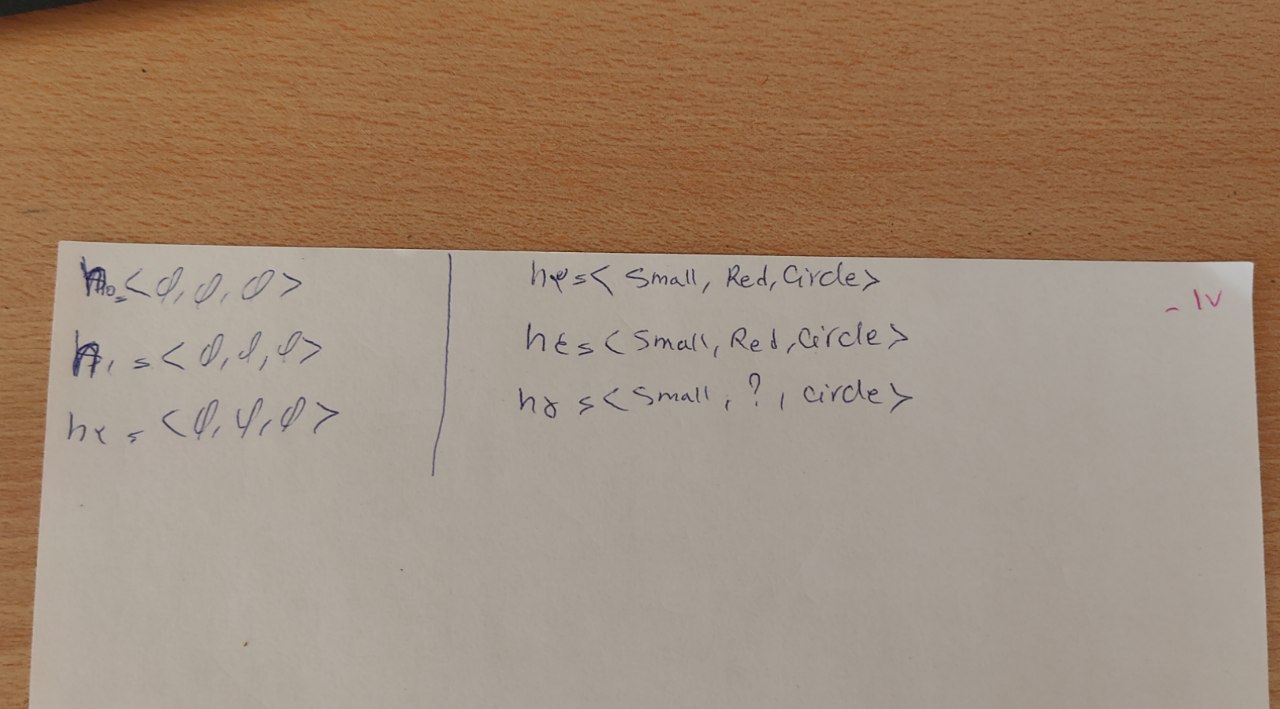 h₀ = <φ, φ, φ>
h₁ = <φ, φ, φ>
h۲ = <φ, φ, φ>
h۳ = < Small, Red, Circle>
h۴ = < Small, Red, Circle>
h۵ = < Small, ?, circle>